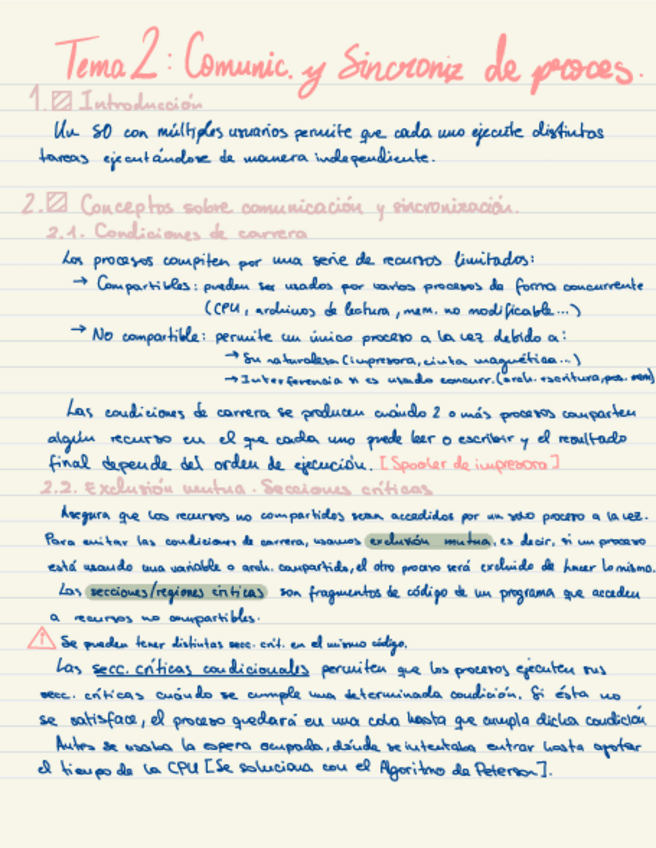 Tema 2: Comunic. y Sincroniz de proces.
1. Introducción
Un SO con múltiples usuarios permite que cada uno ejecute distintas
tareas ejecutándose de manera independiente.
2. Conceptos sobre comunicación y sincronización.
2.1. Condiciones de carrera
Los procesos compiten por una serie de recursos limitados:
→ Compartibles: pueden ser usados por varios procesos de forma concurrente
(CPU, archivos de lectura, mem. no modificable...)
→ No compartible: permite un único proceso a la vez debido a:
→ Su naturaleza (impresora, cinta magnética...)
→ Interferencia si es usado concurr. (arch. escritura, pos. mem)
Las condiciones de carrera se producen cuándo 2 o más procesos comparten
algún recurso en el que cada uno puede leer o escribir y el resultado
final depende del orden de ejecución. [Spooler de impresora]
2.2. Exclusión mutua. Secciones críticas
Asegura que los recursos no compartidos sean accedidos por un solo proceso a la vez.
Para evitar las condiciones de carrera, usamos exclusión mutua, es decir, si un proceso
está usando una variable o arch. compartido, el otro proceso será excluido de hacer lo mismo.
Las secciones/regiones críticas son fragmentos de código de un programa que acceden
a recursos no compartibles.
Se pueden tener distintas secc. crít. en el mismo código.
Las secc. críticas condicionales permiten que los procesos ejecuten sus
secc. críticas cuándo se cumple una determinada condición. Si ésta no
se satisface, el proceso quedará en una cola hasta que cumpla dicha condición
Antes se usaba la espera ocupada, dónde se intentaba entrar hasta agotar
el tiempo de la CPU [Se soluciona con el Algoritmo de Peterson].